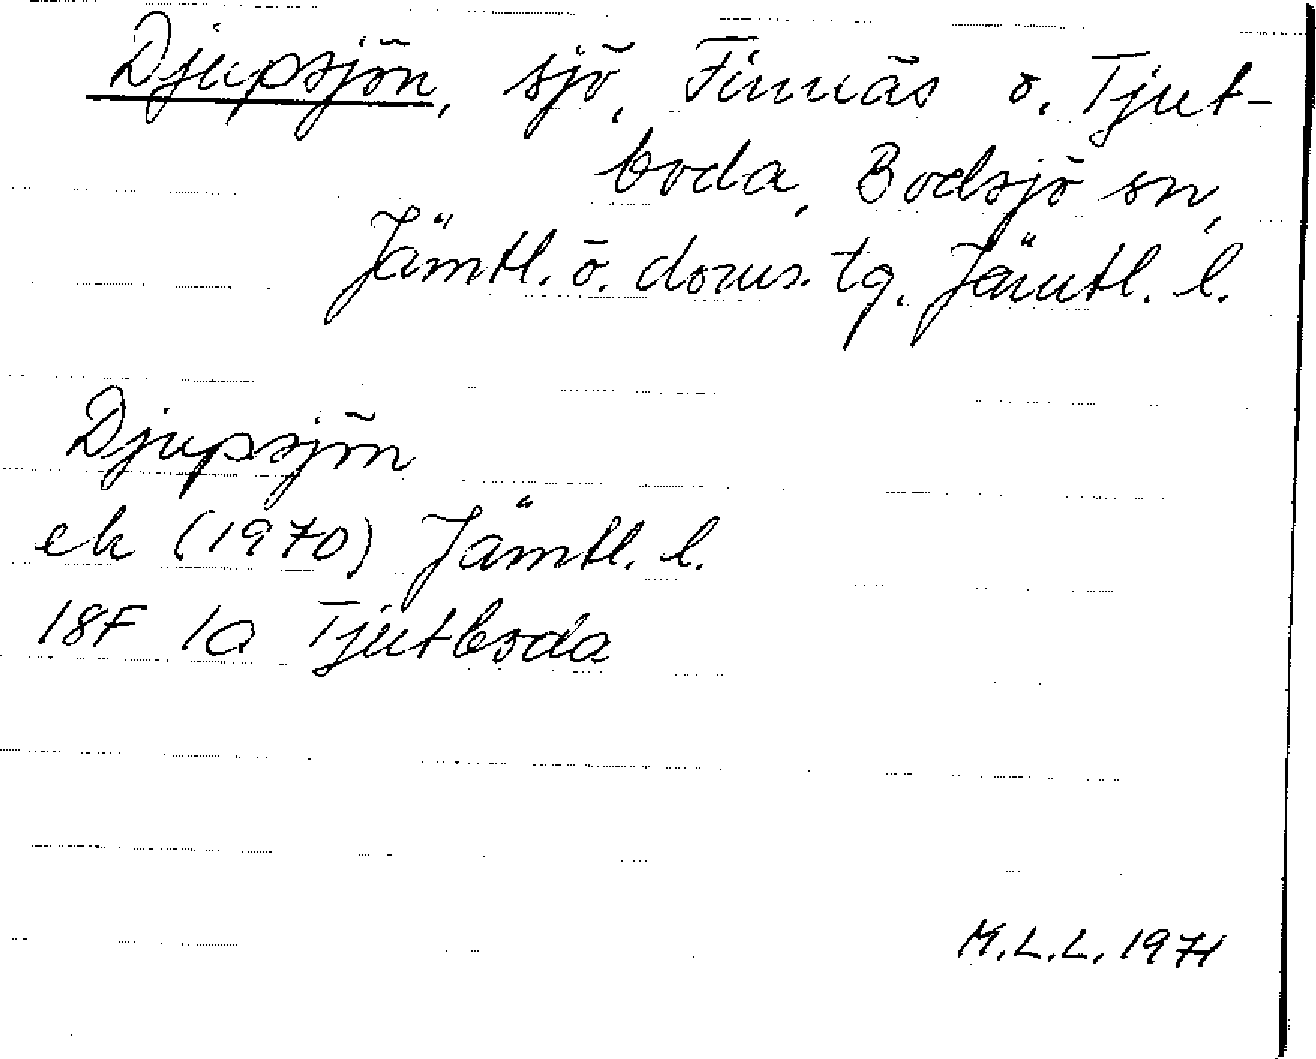 Djupsjön, sjö, Finnäs o. Tjut-
boda, Bodsjö sn,
Jämtl. ö. doms. tg. Jämtl. l.
Djupsjön
ek (1970) Jämtl. l.
18F 1a Tjutboda
M.L.L. 1971